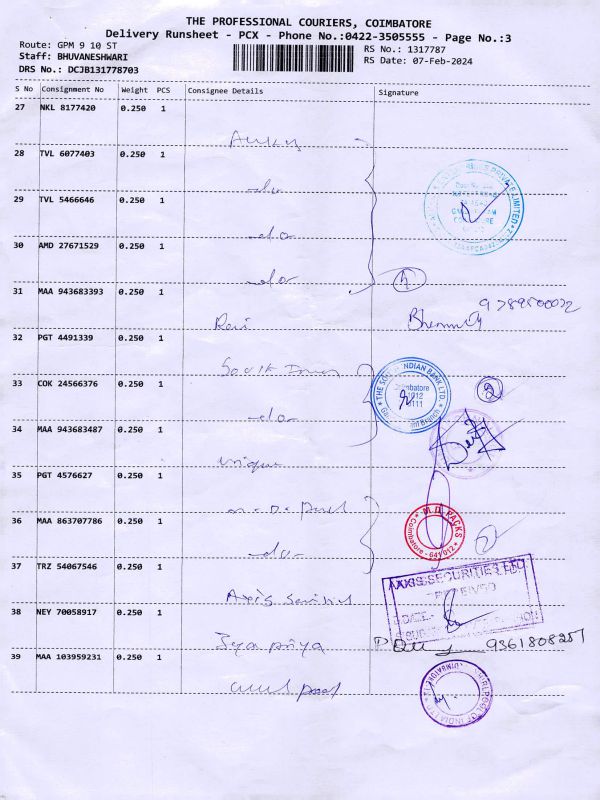 THE PROFESSIONAL COURIERS, COIMBATORE
Delivery Runsheet - PCX - Phone No.:0422-3505555 - Page No.:3
Route: GPM 9 10 ST
Staff: BHUVANESHWARI
DRS No.: DCJB131778703
RS No.: 1317787
RS Date: 07-Feb-2024
S No Consignment No Weight PCS Consignee Details Signature
27 NKL 8177420 0.250 1
28 TVL 6077403 0.250 1
do
29 TVL 5466646 0.250 1
do
30 AMD 27671529 0.250 1
do
4
31 MAA 943683393 0.250 1
Ravi
32 PGT 4491339 0.250 1
South
THE SOUTH INDIAN BANK LTD.
Coimbatore
33 COK 24566376 0.250 1
do
2
34 MAA 943683487 0.250 1
unique
35 PGT 4576627 0.250 1
M.D. PACKS
Coimbatore - 641 012
36 MAA 863707786 0.250 1
do
2
37 TRZ 54067546 0.250 1
Axis
AXXIS SECURITIES LTD
RECEIVED
DATE:
38 NEY 70058917 0.250 1
Jyapriya
9361808251
39 MAA 103959231 0.250 1
WHIRLPOOL OF INDIA LTD